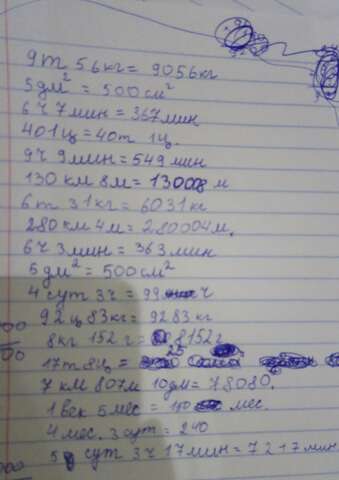 9т 56кг = 9056кг
5дм² = 500см²
6ч 7мин = 367мин
401ц = 40т 1ц.
9ч 9мин = 549мин
130км 8м = 130008 м
6т 31кг = 6031кг
280км 4м = 280004м.
6ч 3мин = 363мин
5дм² = 500см²
4сут 3ч = 99 ч
92ц 83кг = 9283кг
8кг 152г = 8152г
17т 8ц =
7 км 807м 10дм = 78080.
1век 5мес = мес.
4мес. 3сут = 240
5 сут 3ч 17мин = 7217мин